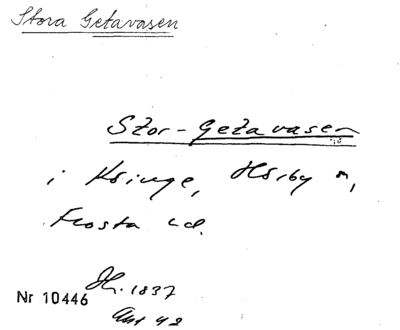 Stora Getavasen
Stor-Getavasen
i Kringe, Hörby sn,
Frosta hd.
Nr 10446 Hr. 1837
Ant 42